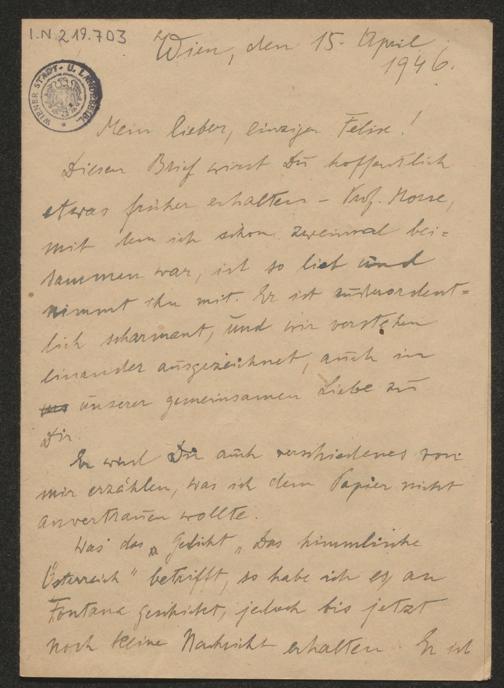 I.N 219.703
WIENER STADT- U. LANDESBIBL.
Wien, den 15. April
1946.
Mein lieber, einziger Felix!
Diesen Brief wirst Du hoffentlich
etwas früher erhalten – Prof. Morse,
mit dem ich schon zweimal bei=
sammen war, ist so lieb und
nimmt ihn mit. Er ist außerordent=
lich scharmant, und wir verstehen
einander ausgezeichnet, auch in
unserer gemeinsamen Liebe zu
Dir.
Er wird Dir auch verschiedenes von
mir erzählen, was ich dem Papier nicht
anvertrauen wollte.
Was das „Gedicht „Das himmlische
Österreich" betrifft, so habe ich es an
Fontana geschickt, jedoch bis jetzt
noch keine Nachricht erhalten. Er ist